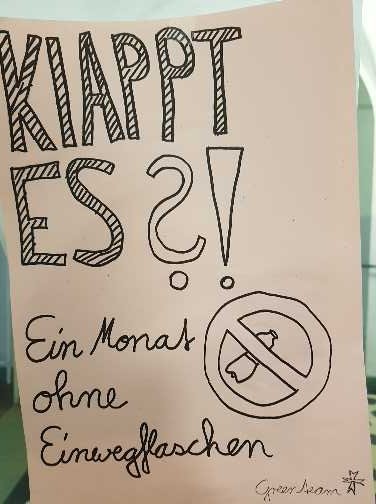 KlAPPT
ES?!
Ein Monat
ohne
Einwegflaschen
Greenteam